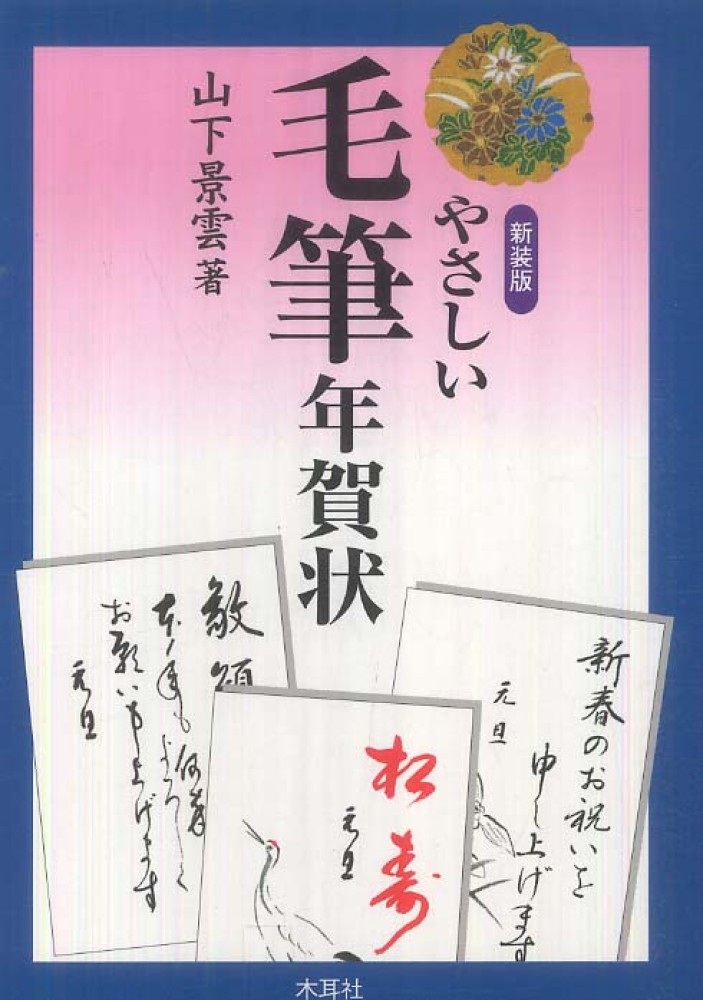 新装版
やさしい
毛筆年賀状
山下景雲著
新春のお祝いを
申し上げます
元旦
松寿
元旦
敬頌
本年も何卒
よろしく
お願い申し上げます
元旦
木耳社